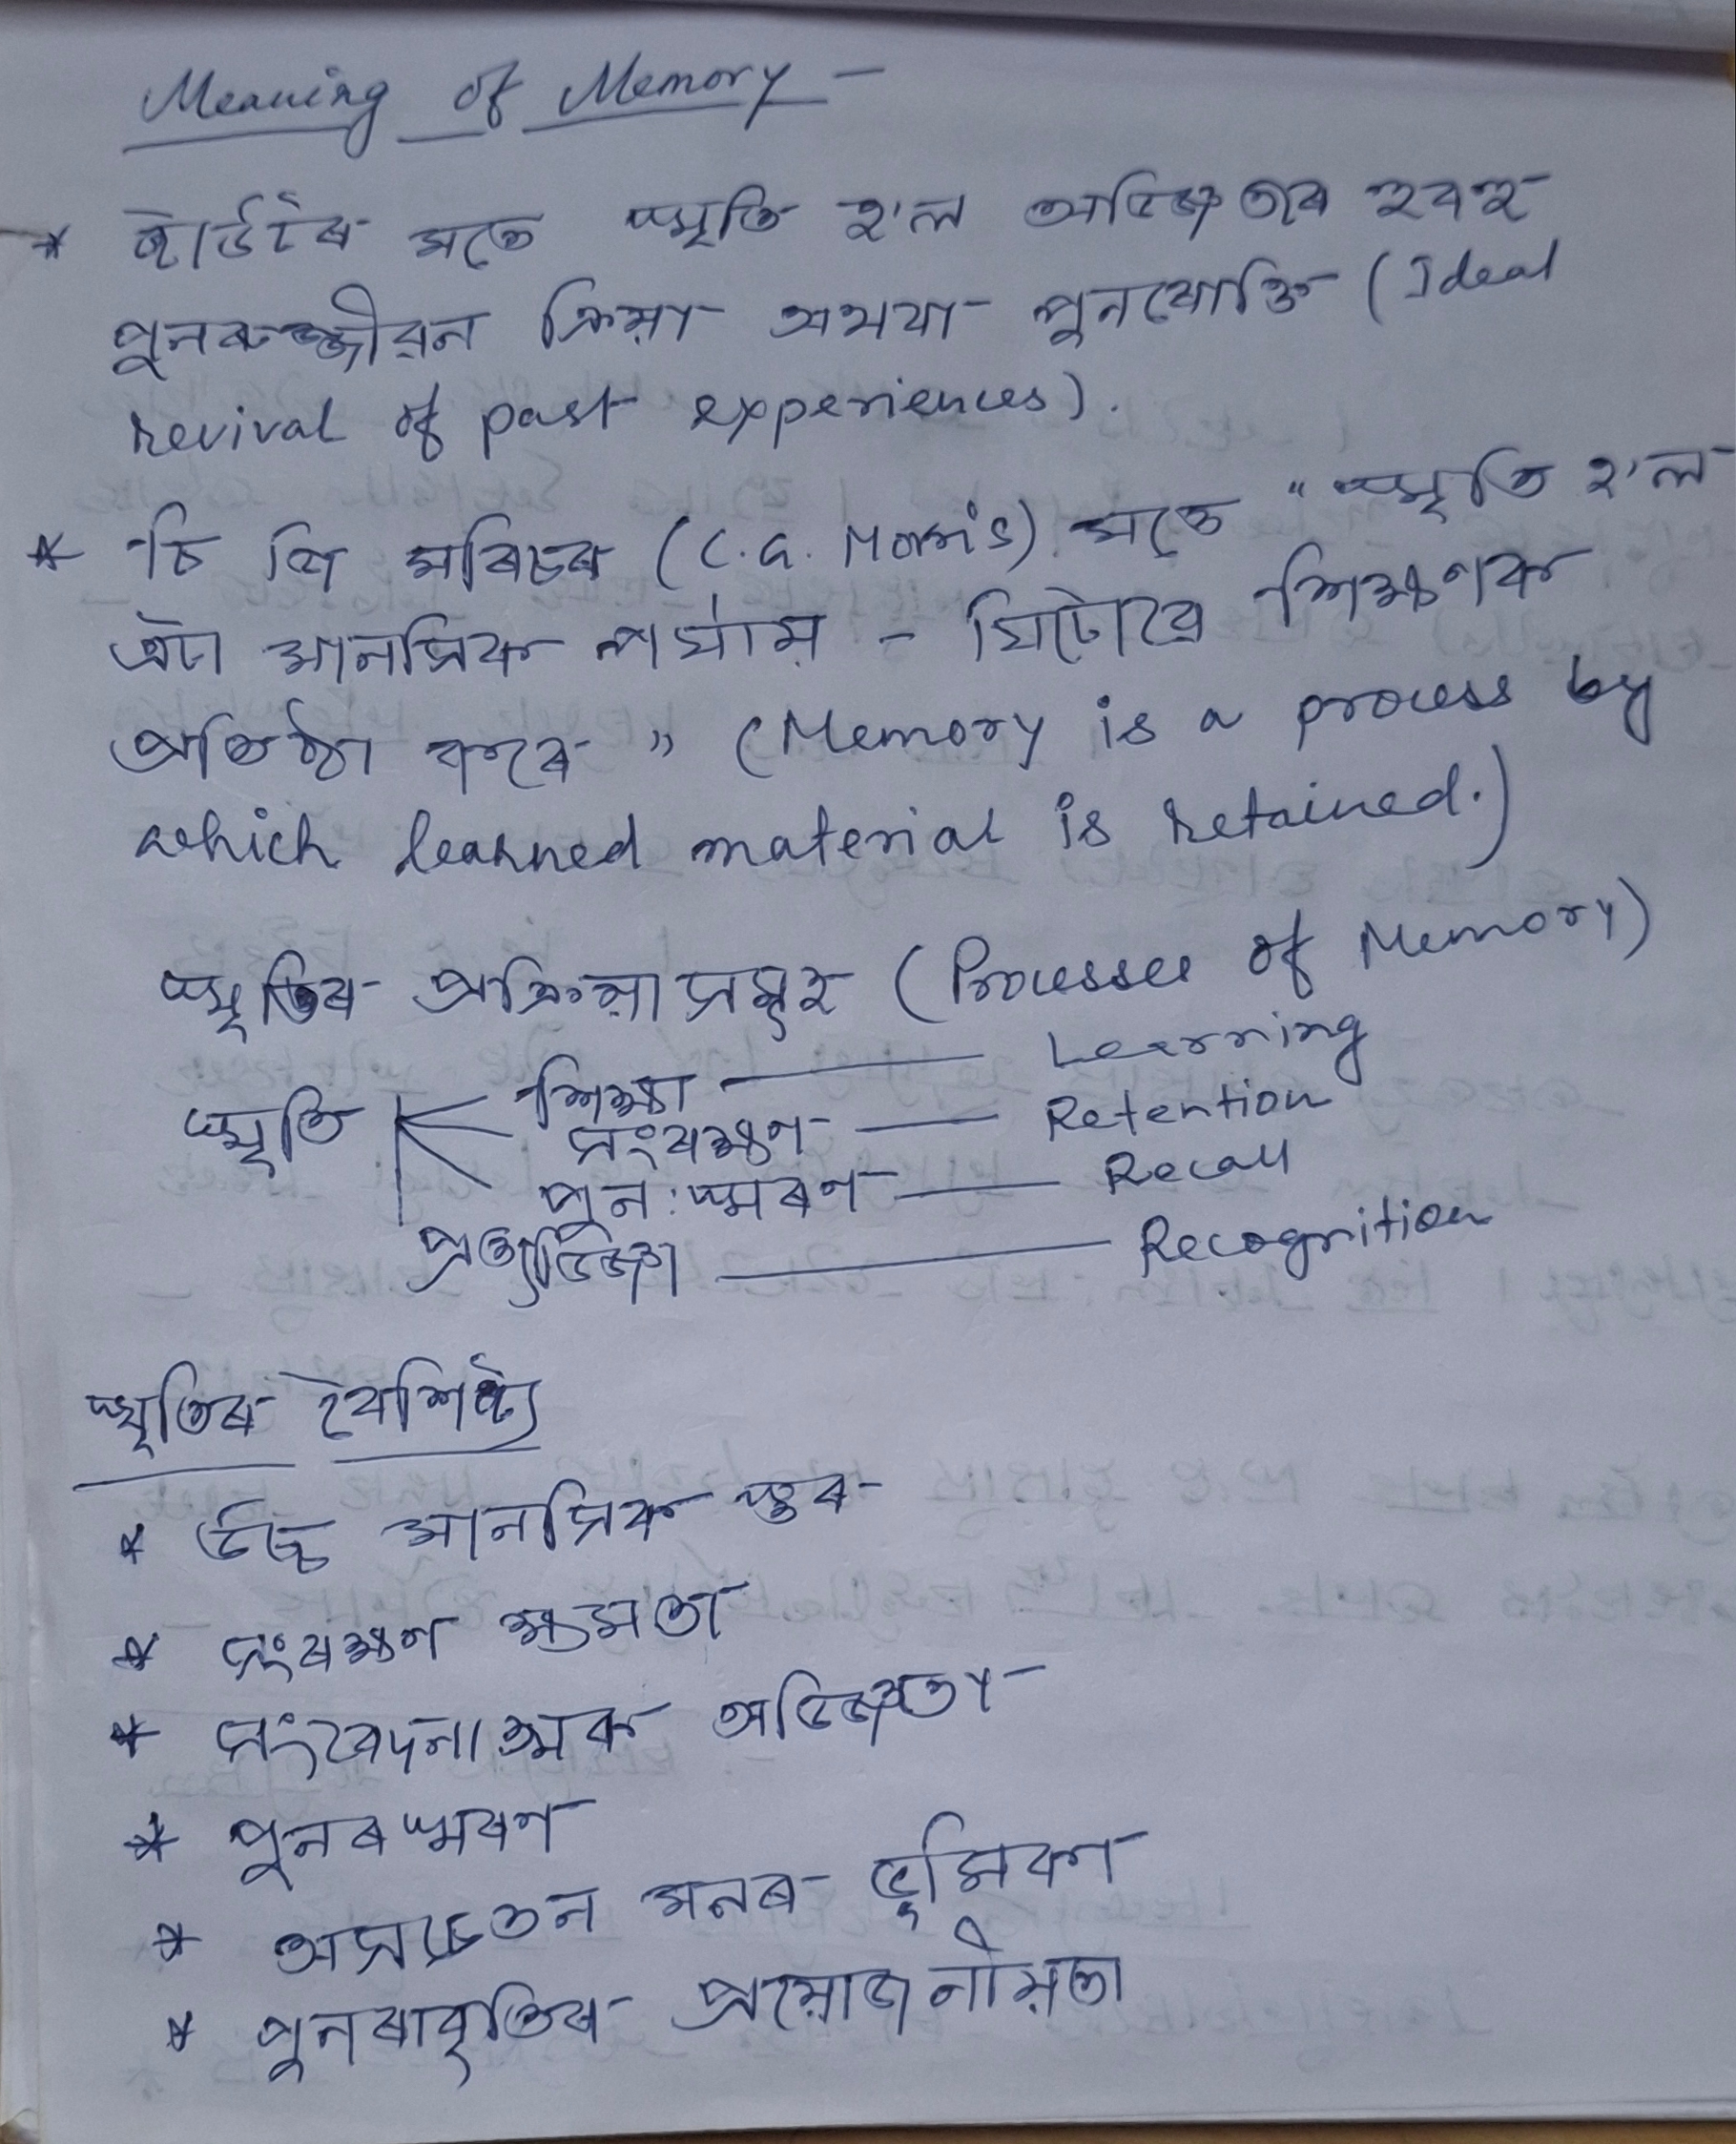 Meaning of Memory –
* ষ্টাৰ্উটৰ মতে স্মৃতি হ'ল অভিজ্ঞতাৰ হুবহু
পুনৰুজ্জীৱন ক্ৰিয়া অথবা পুনযোক্তি (Ideal
revival of past experiences).
* চি জি মৰিচৰ (C.G. Morris) মতে "স্মৃতি হ'ল
এটা মানসিক পৰ্যায় – যিটোৱে শিক্ষণক
প্ৰতিষ্ঠা কৰে" (Memory is a process by
which learned material is retained.)
স্মৃতিৰ প্ৰক্ৰিয়াসমূহ (Processes of Memory)
শিক্ষা — Learning
স্মৃতি সংৰক্ষণ — Retention
পুন:স্মৰণ — Recall
প্ৰত্যভিজ্ঞা — Recognition
স্মৃতিৰ বৈশিষ্ট্য
* উচ্চ মানসিক স্তৰ
* সংৰক্ষণ ক্ষমতা
* সংবেদনাত্মক অভিজ্ঞতা
* পুনৰস্মৰণ
* অসচেতন মনৰ ভূমিকা
* পুনৰাবৃতিৰ প্ৰয়োজনীয়তা